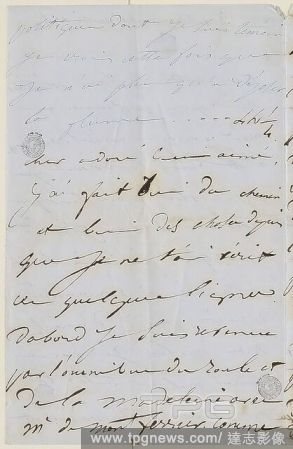 politique dont je suis témoin
je vois cette fois que
je n'ai plus qu'à déposer
la plume
cher adoré bien aimé,
j'ai fait bien du chemin
et bien des choses depuis
que je ne t'ai écrit
ces quelques lignes.
D'abord je suis revenue
par l'omnibus du roule et
de la madeleine avec
Mr de montferrier comme
TPG
www.tpgnews.com / 達志影像